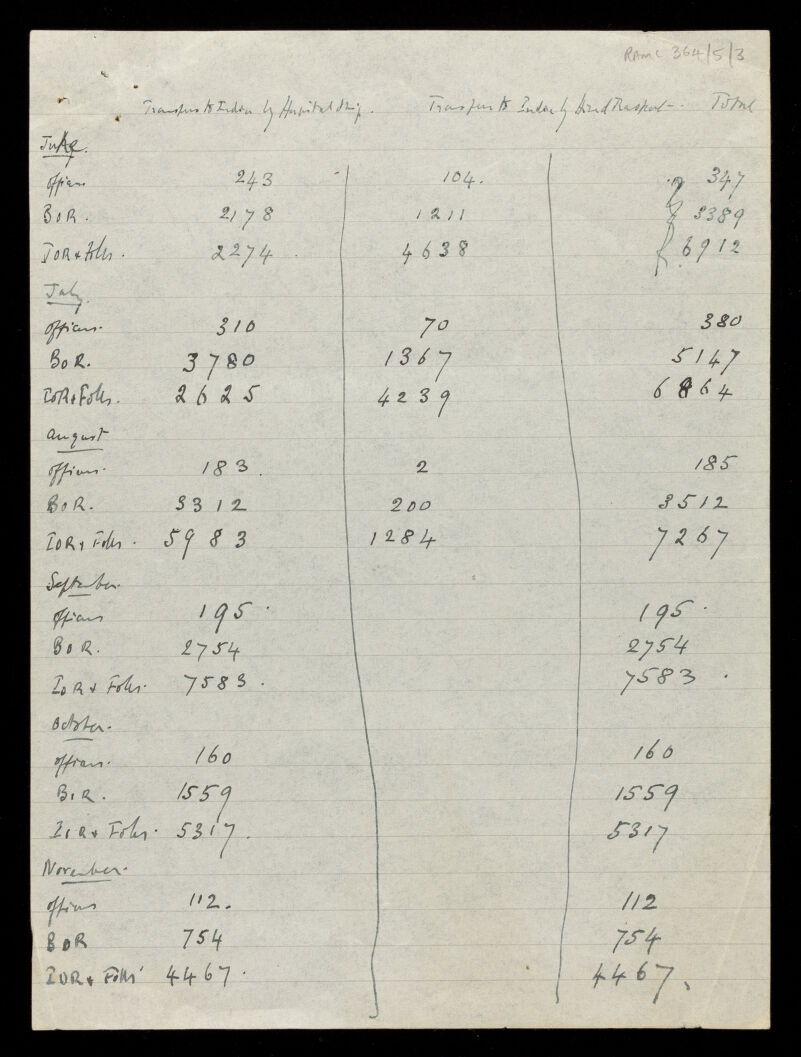 RAMC 364/5/3
Transfers to India by Hospital Ship. Transfers to India by Hired Transport. Total
June.
Officers 243 104. 347
BOR. 2178 1211 3389
IOR & Follrs. 2274 4638 6912
July.
Officers. 310 70 380
BOR. 3780 1367 5147
IOR & Follrs. 2625 4239 6864
August
Officers. 183. 2 185
BOR. 3312 200 3512
IOR & Follrs. 5983 1284 7267
September.
Officers 195. 195.
BOR. 2754 2754
IOR & Follrs. 7583. 7583.
October.
Officers. 160 160
BOR. 1559 1559
IOR & Follrs. 5317. 5317
November.
Officers 112. 112
BOR 754 754
IOR & Follrs 4467. 4467.